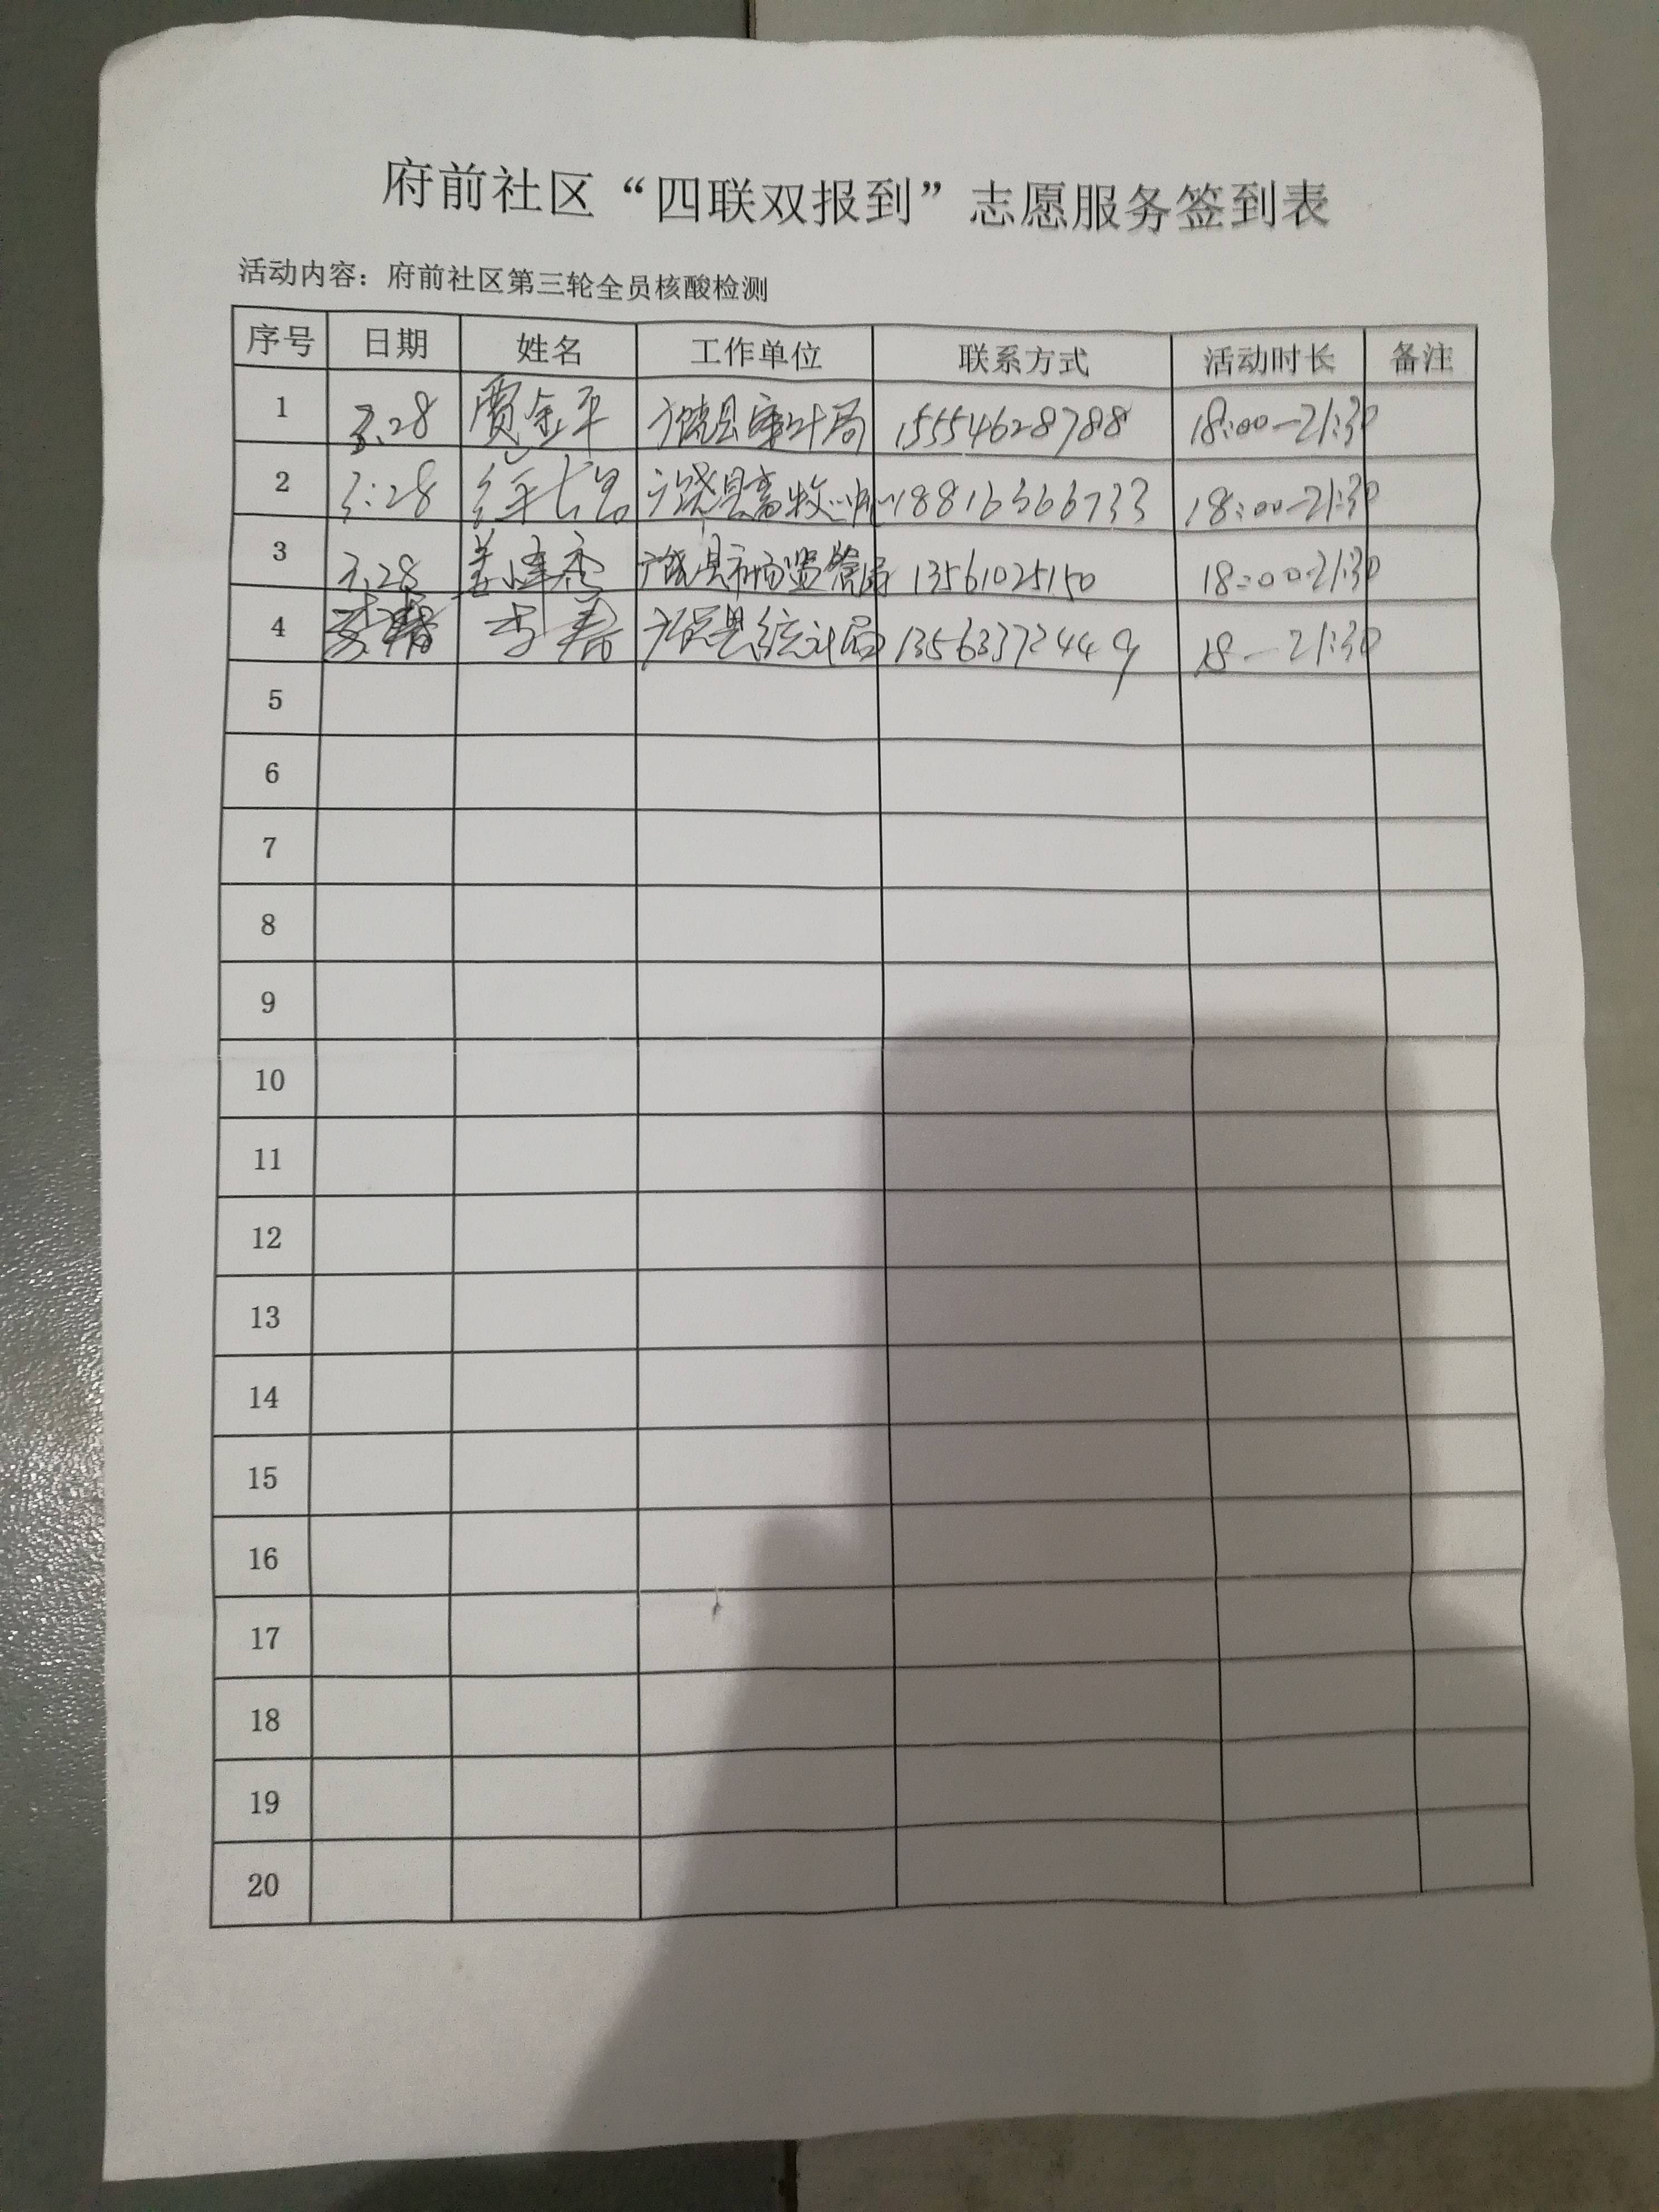 府前社区“四联双报到”志愿服务签到表
活动内容：府前社区第三轮全员核酸检测
序号 日期 姓名 工作单位 联系方式 活动时长 备注
1 3.28 贾金平 广饶县审计局 15554628788 18:00-21:30
2 3:28 广饶县畜牧 18816366733 18:00-21:30
3 3.28 广饶县市场监管局 13561025150 18:00-21:30
4 李 广饶县统计局 13563372449 18-21:30
5
6
7
8
9
10
11
12
13
14
15
16
17
18
19
20